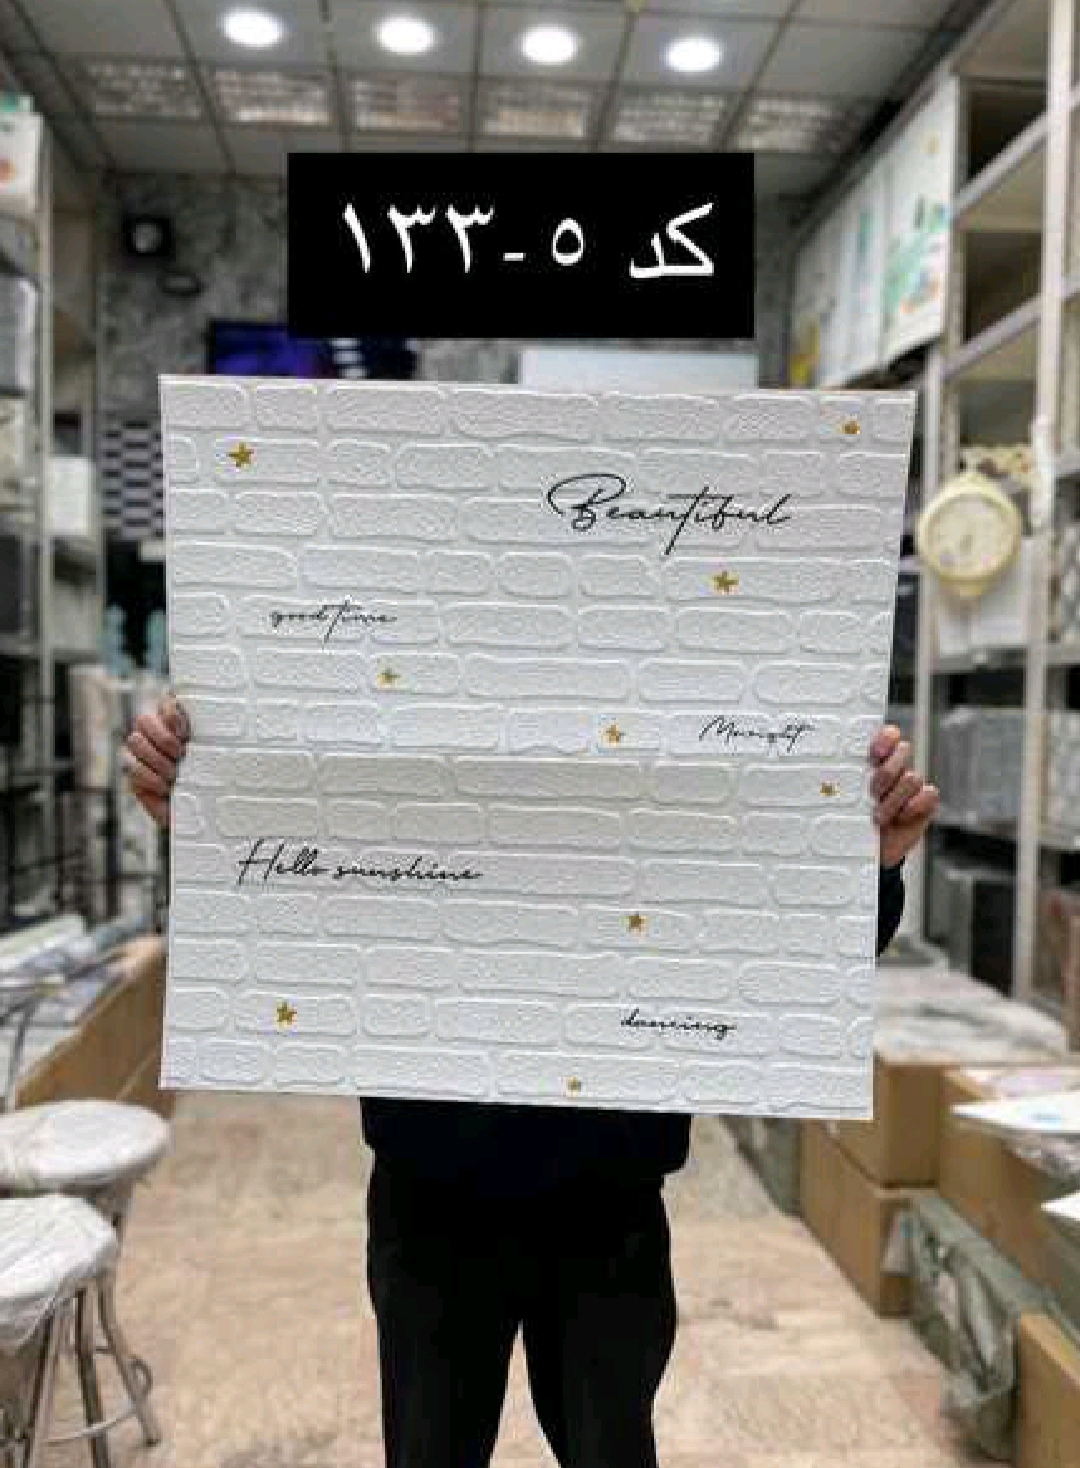 کد ۵-۱۳۳
Beautiful
good time
Hello sunshine
dancing